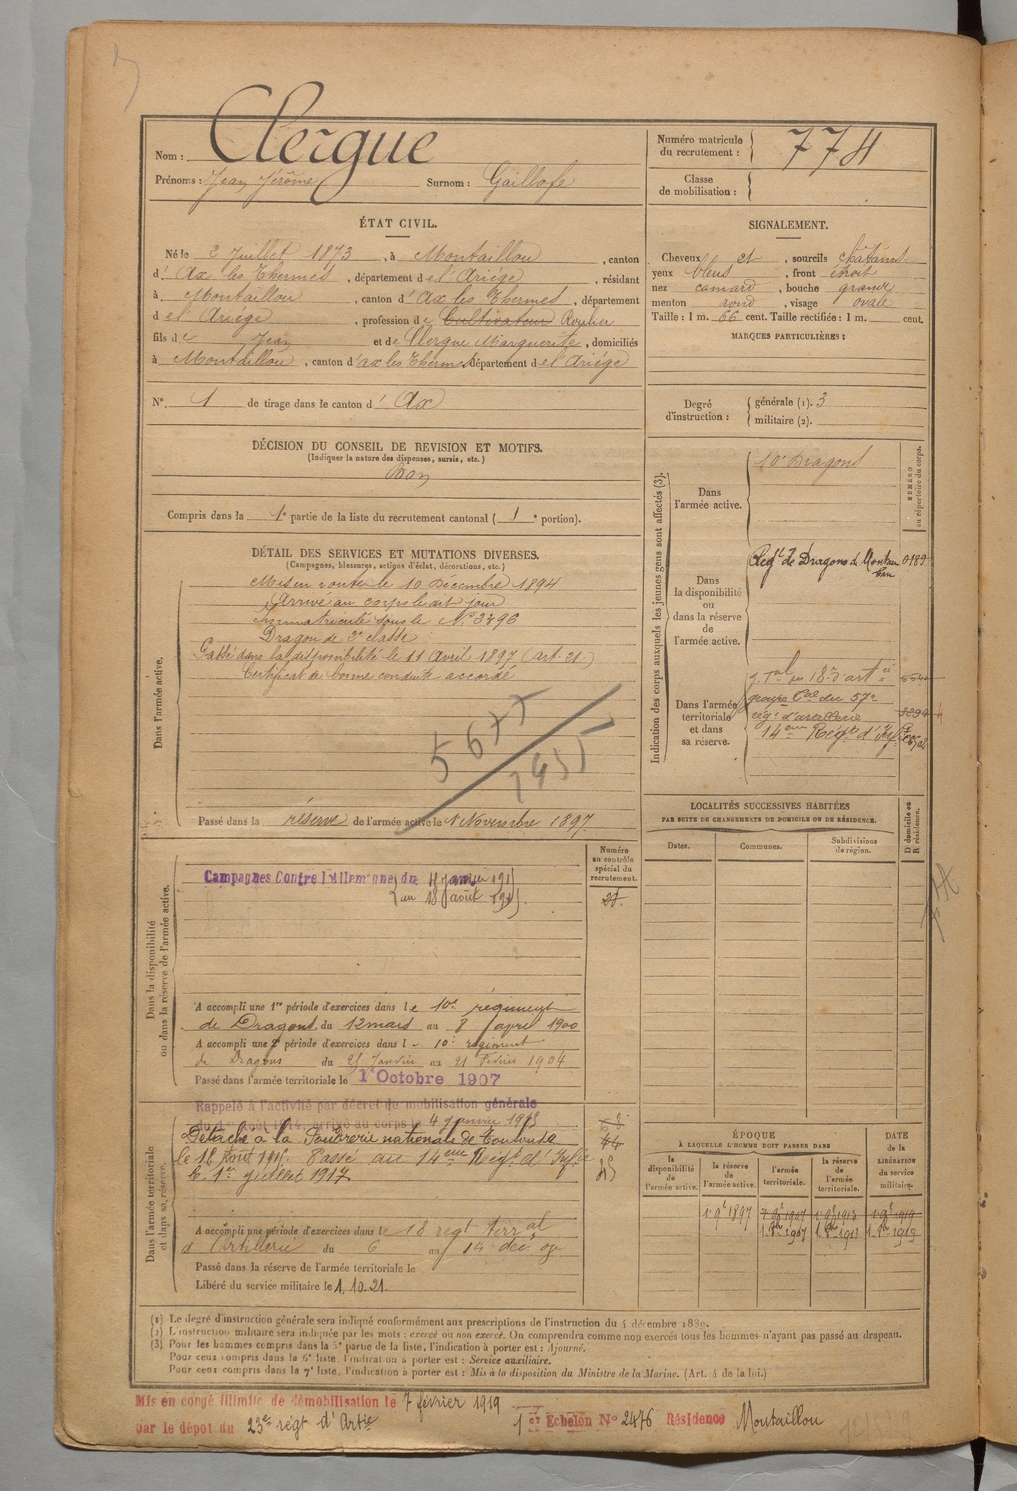 Nom : Clergue
Prénoms : Jean Jérôme Surnom : Gaillofe
Numéro matricule du recrutement : 774
Classe de mobilisation :
ÉTAT CIVIL.
Né le 2 Juillet 1873, à Montaillou, canton
d' Ax les Thermes, département de l'Ariége, résidant
à Montaillou, canton d'Ax les Thermes, département
d el Ariége, profession de Cultivateur Roulier
fils de Jean et de Clergue Marguerite, domiciliés
à Montaillou, canton d'ax les Thermes, département del Ariége
N° 1 de tirage dans le canton d' Ax
SIGNALEMENT.
Cheveux et, sourcils chatains
yeux bleus, front étroit
nez camard, bouche grande
menton rond, visage ovale
Taille : 1 m. 66 cent. Taille rectifiée : 1 m. cent.
MARQUES PARTICULIÈRES :
Degré d'instruction : générale (1). 3
militaire (2).
DÉCISION DU CONSEIL DE REVISION ET MOTIFS.
(Indiquer la nature des dispenses, sursis, etc.)
Bon
Compris dans la 1e partie de la liste du recrutement cantonal ( 1 e portion).
DÉTAIL DES SERVICES ET MUTATIONS DIVERSES.
(Campagnes, blessures, actions d'éclat, décorations, etc.)
Dans l'armée active.
Mis en route le 10 Décembre 1894
Arrivé au corps le dit jour
Immatriculé sous le N° 3496
Dragon de 2e classe
Passé dans la disponibilité le 11 Avril 1897 (art. 21.)
Certificat de bonne conduite accordé
Passé dans la réserve de l'armée active le 1 Novembre 1897
Indication des corps auxquels les jeunes gens sont affectés (3).
NUMÉRO au répertoire du corps.
Dans l'armée active.
10e Dragons
Dans la disponibilité ou dans la réserve de l'armée active.
Régt de Dragons de Montauban 0189
Dans l'armée territoriale et dans sa réserve.
groupe tal du 57e
régt d'artillerie
14eme Régt d'
LOCALITÉS SUCCESSIVES HABITÉES
PAR SUITE DE CHANGEMENTS DE DOMICILE OU DE RÉSIDENCE.
Dates. Communes. Subdivisions de région. D domicile ou R résidence.
Dans la disponibilité ou dans la réserve de l'armée active.
Numéro au contrôle spécial du recrutement.
Campagnes Contre l'Allemagne du
A accompli une 1re période d'exercices dans le 10e régiment
de Dragons, du 12 mars au 8 april 1900
A accompli une 2e période d'exercices dans l e 10e régiment
de Dragons du 25 Janvier au 21 Février 1904
Passé dans l'armée territoriale le 1er Octobre 1907
Dans l'armée territoriale et dans sa réserve.
Rappelé à l'activité par décret de mobilisation générale
du 1er août 1914, arrivé au corps le 4 janvier
Détaché à la Poudrerie nationale de Toulouse
le 18 Aout 1915. Passé au 14eme Régt d'
le 1er juillet 1917
A accompli une période d'exercices dans le 18 regt terral
d'Artillerie du 6 au 14 dec.
Passé dans la réserve de l'armée territoriale le
Libéré du service militaire le 1.10.21.
ÉPOQUE
À LAQUELLE L'HOMME DOIT PASSER DANS
la disponibilité de l'armée active. la réserve de l'armée active. l'armée territoriale. la réserve de l'armée territoriale.
DATE de la LIBÉRATION du service militaire.
1 9e 1897
(1) Le degré d'instruction générale sera indiqué conformément aux prescriptions de l'instruction du 4 décembre 1889.
(2) L'instruction militaire sera indiquée par les mots : exercé ou non exercé. On comprendra comme non exercés tous les hommes n'ayant pas passé au drapeau.
(3) Pour les hommes compris dans la 5e partie de la liste, l'indication à porter est : Ajourné.
Pour ceux compris dans la 6e liste, l'indication à porter est : Service auxiliaire.
Pour ceux compris dans la 7e liste, l'indication à porter est : Mis à la disposition du Ministre de la Marine. (Art. 4 de la loi.)
Mis en congé illimité de démobilisation le 7 février 1919
1er Echelon N° 2476 Résidence Montaillou
par le dépot du 23e régt d'Artie